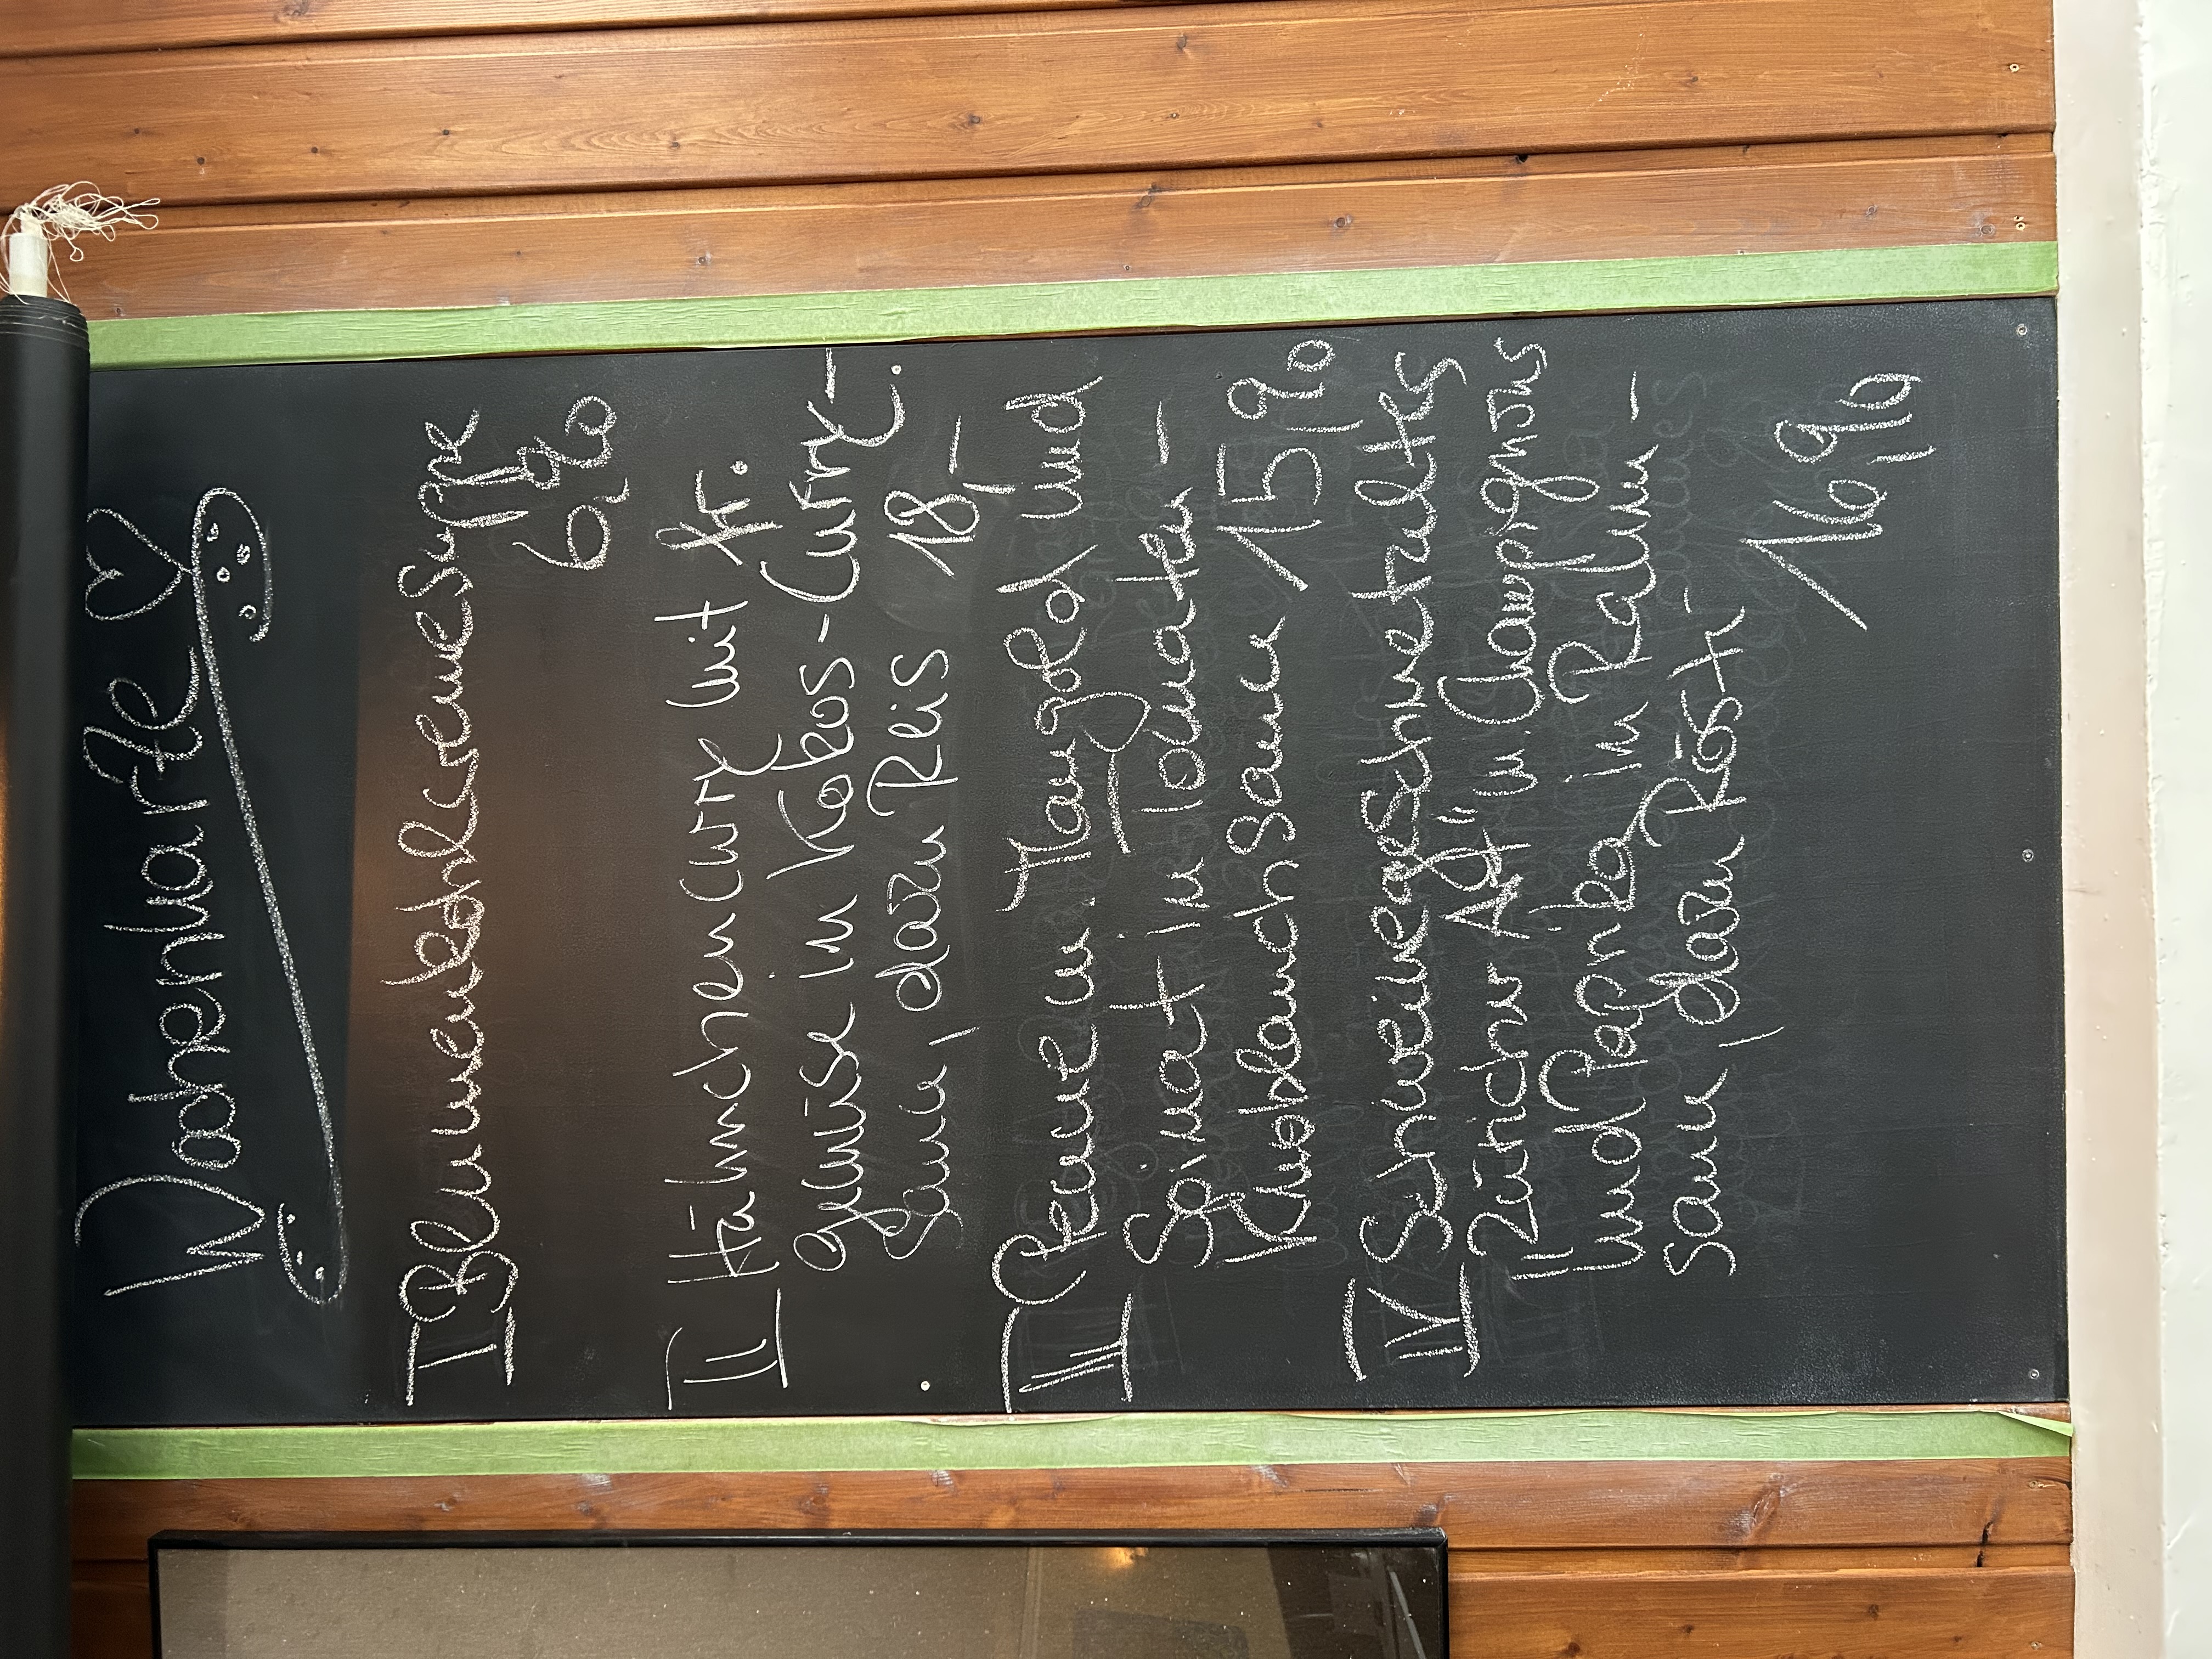 Wochenkarte
I Blumenkohlcremesuppe
6,90
II Hähnchencurry mit fr.
gemüse in Kokos-Curry-
Sauce, dazu Reis 18,-
III Penne m. Mangold und
Spinat in Tomaten-
Knoblauchsauce 15,90
IV Schweinegeschnetzeltes
"Züricher Art" m. Champignons
und Paprika in Rahm-
sauce, dazu Rösti
16,90